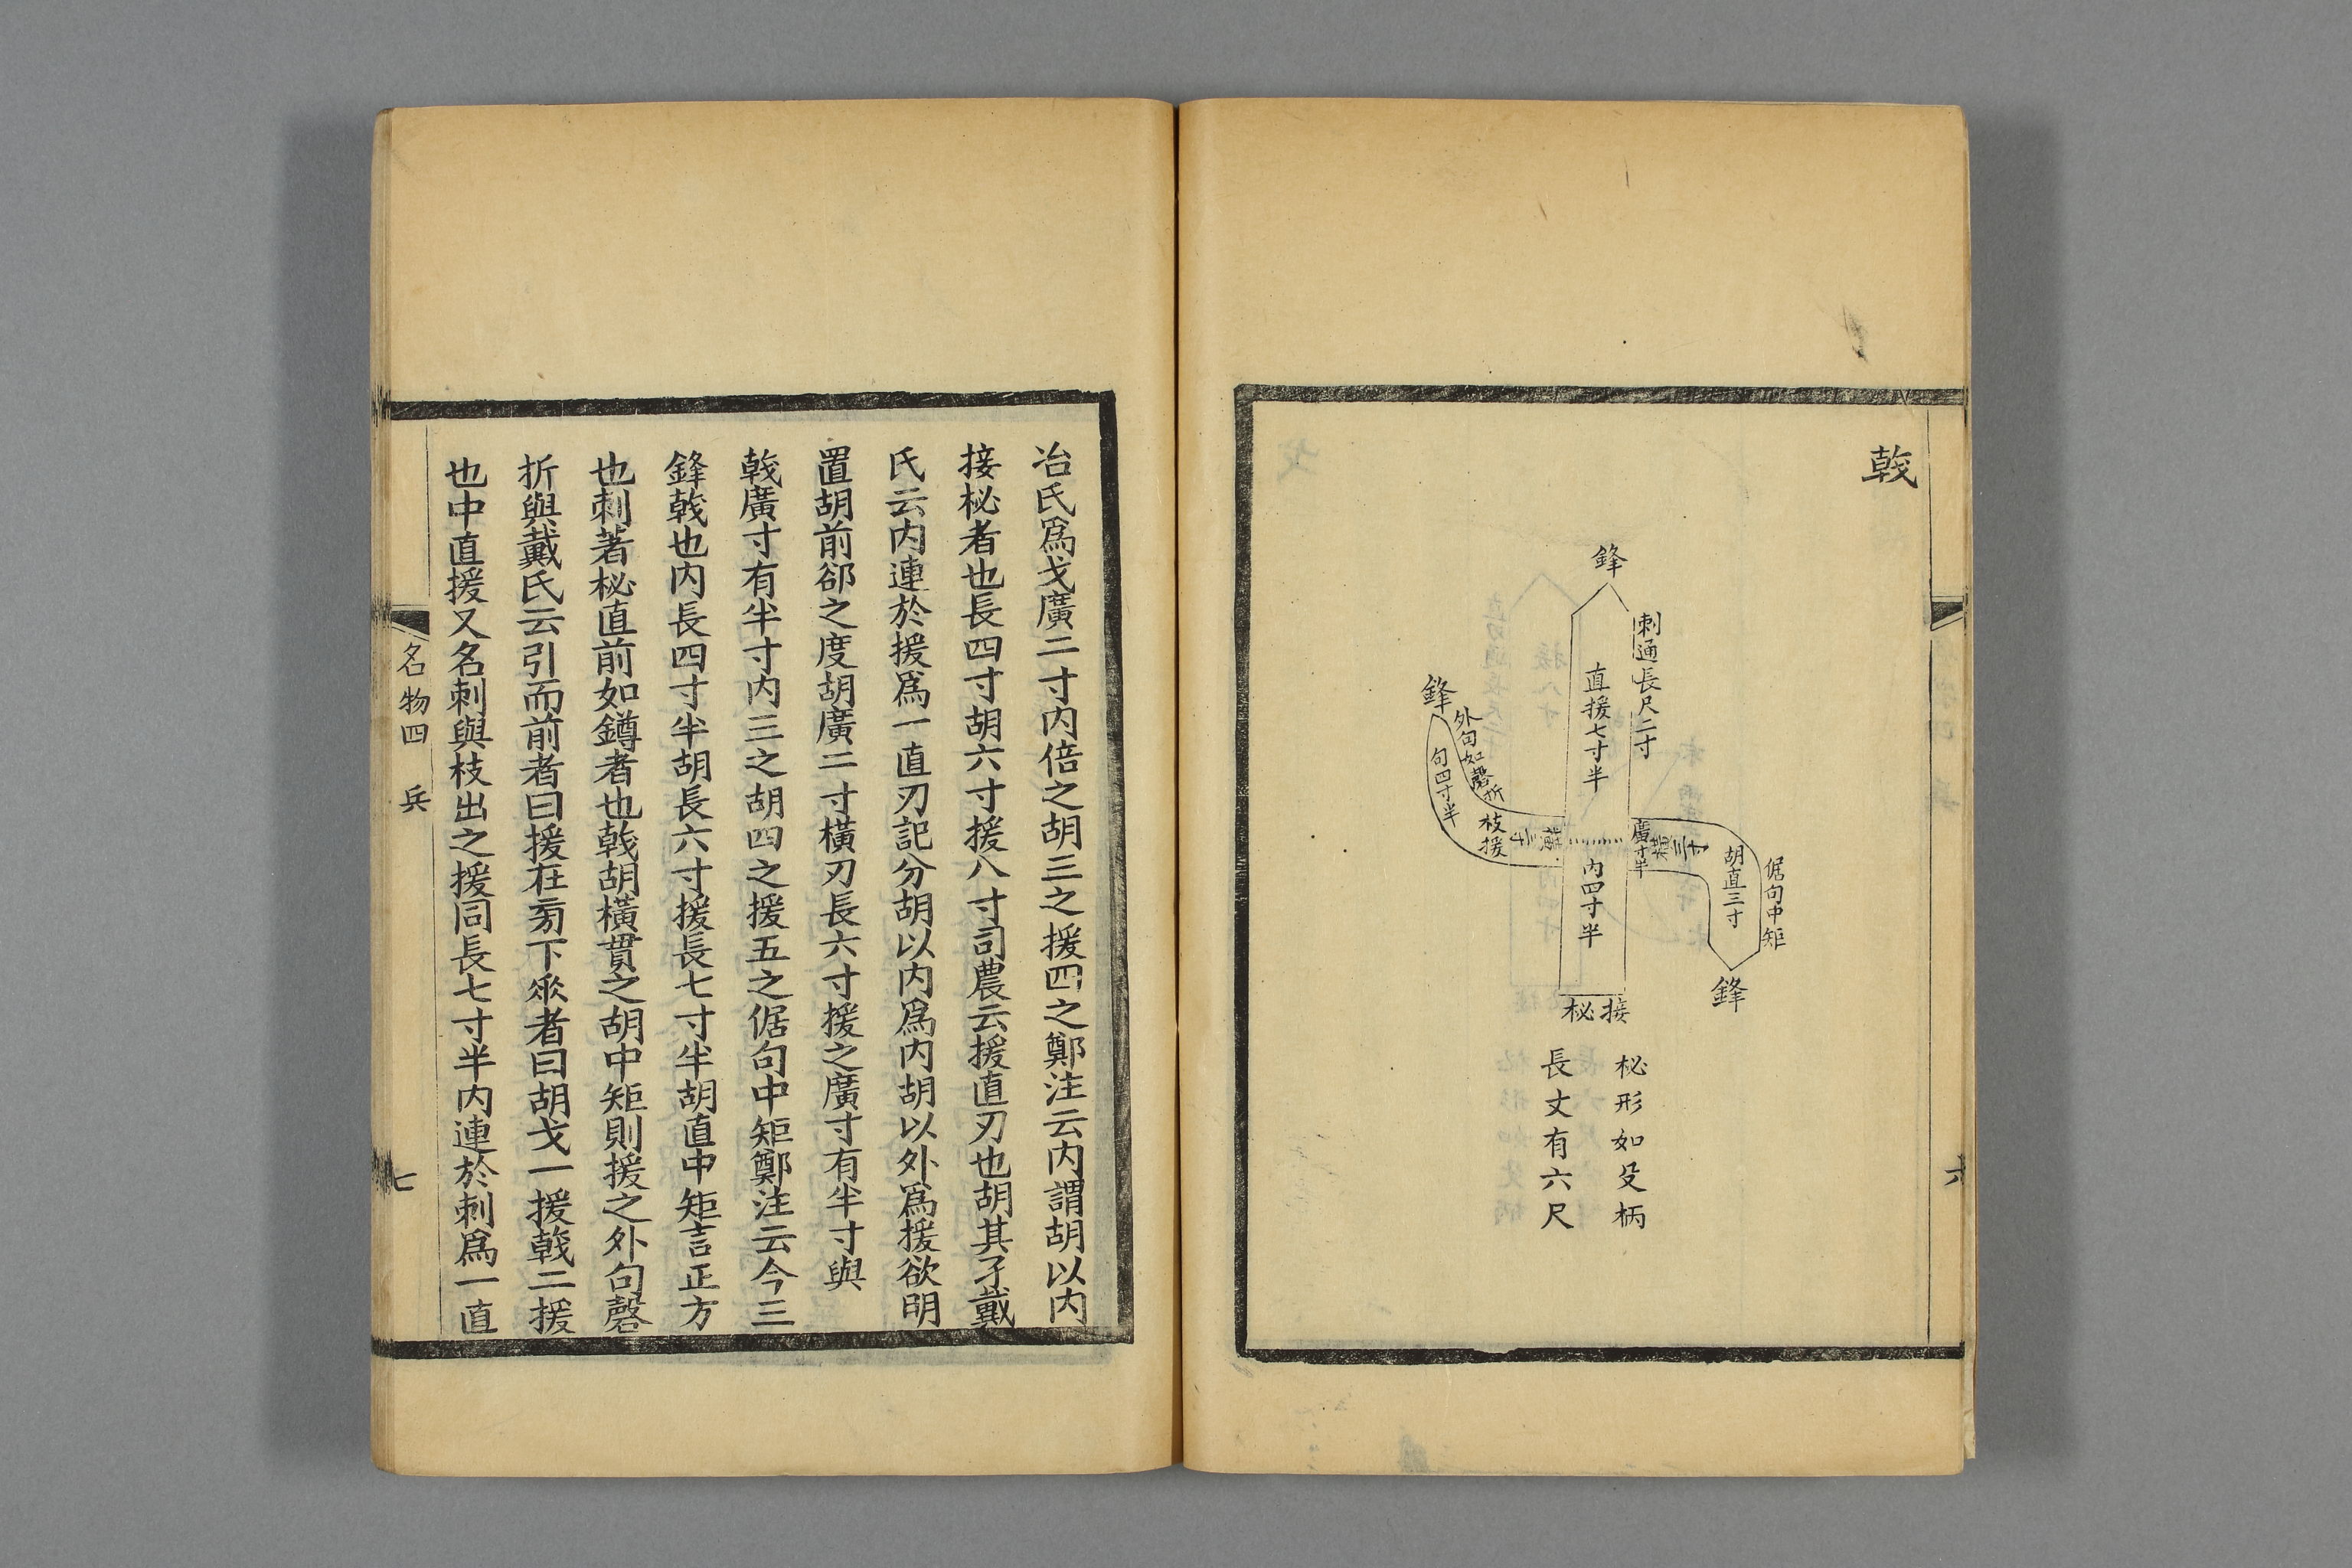 戟
鋒
刺通長尺二寸
直援七寸半
鋒
外句如磬折
句四寸半
枝援
橫三寸
廣寸半
橫三寸
胡直三寸
倨句中矩
鋒
內四寸半
接柲
柲形如殳柄
長丈有六尺
六
冶氏爲戈廣二寸内倍之胡三之援四之鄭注云内謂胡以内
接柲者也長四寸胡六寸援八寸司農云援直刃也胡其孑戴
氏云内連於援爲一直刃記分胡以内爲内胡以外爲援欲明
置胡前郤之度胡廣二寸橫刃長六寸援之廣寸有半寸與
戟廣寸有半寸内三之胡四之援五之倨句中矩鄭注云今三
鋒戟也内長四寸半胡長六寸援長七寸半胡直中矩言正方
也刺著柲直前如鐏者也戟胡橫貫之胡中矩則援之外句磬
折與戴氏云引而前者曰援在㫄下垂者曰胡戈一援戟二援
也中直援又名刺與枝出之援同長七寸半内連於刺爲一直
名物四 兵
七